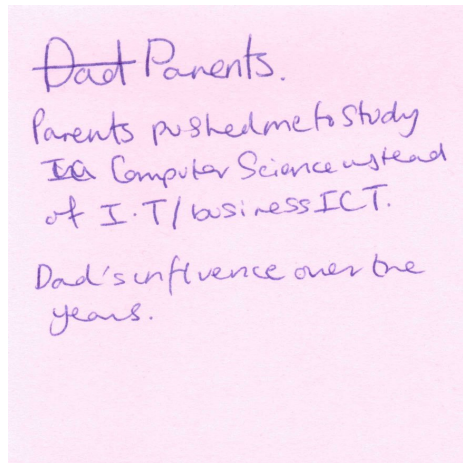 Dad Parents.
Parents pushed me to study
Computer Science instead
of I.T/business ICT.
Dad's influence over the
years.